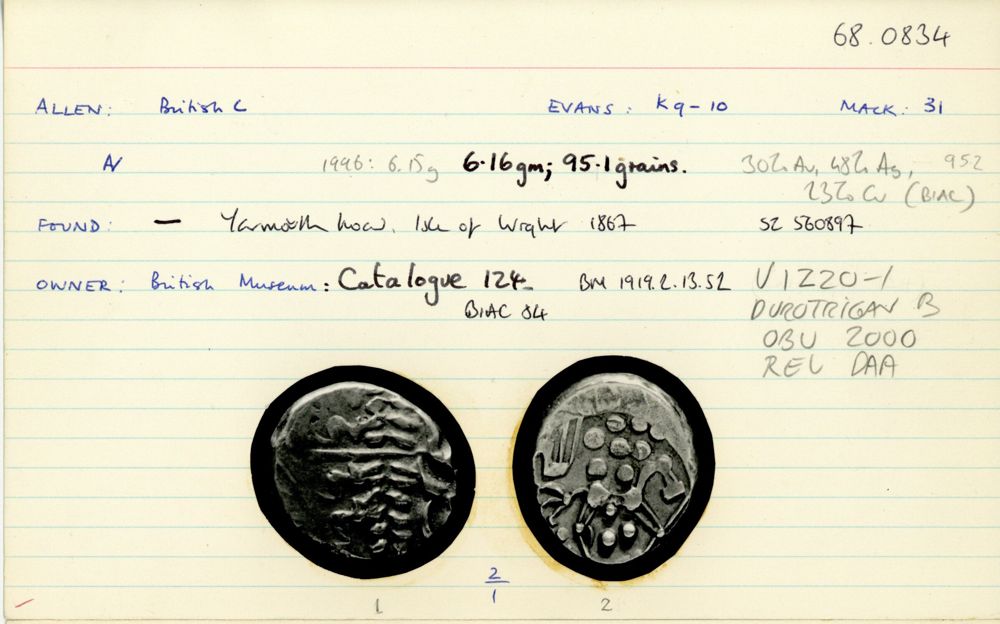 68.0834
ALLEN: British C EVANS: K9-10 MACK: 31
AV 1996: 6.15g 6.16gm; 95.1grains. 30% Au, 48% Ag, 952
23% Cu (BIAC)
FOUND: — Yarmouth Road, Isle of Wight 1867 SZ 560897
OWNER: British Museum: Catalogue 124 BM 1919.2.13.52 V1220-1
BIAC 84 DUROTRIGAN B
OBV 2000
REV DAA
2
1
1 2